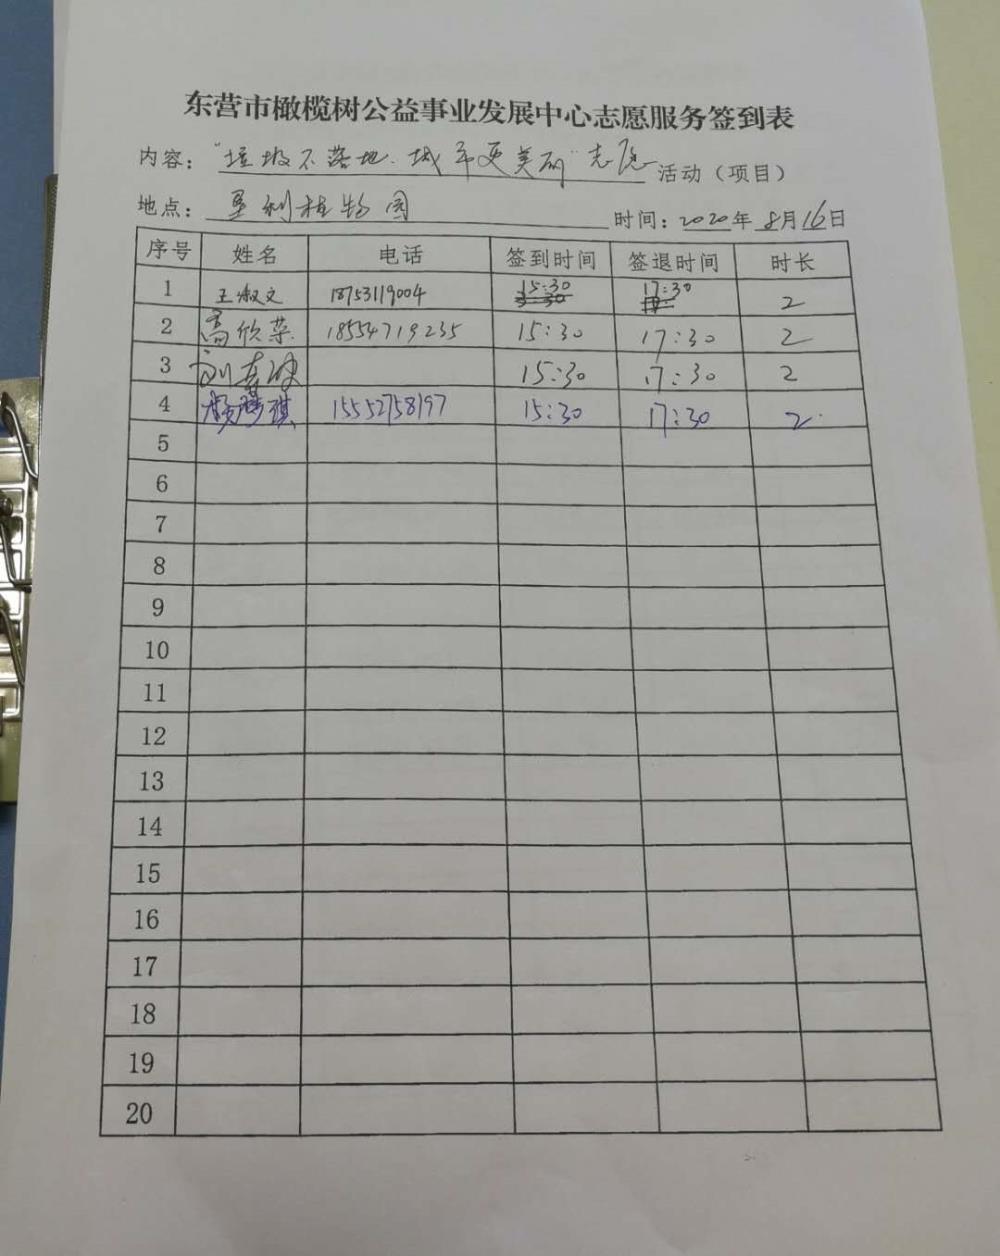 东营市橄榄树公益事业发展中心志愿服务签到表
内容："垃圾不落地.城市更美丽"志愿 活动（项目）
地点：垦利植物园 时间：2020年8月16日
序号 姓名 电话 签到时间 签退时间 时长
1 王淑文 18753119004 15:30 17:30 2
2 高欣荣 18554719235 15:30 17:30 2
3 刘春波 15:30 17:30 2
4 15552758197 15:30 17:30 2
5
6
7
8
9
10
11
12
13
14
15
16
17
18
19
20